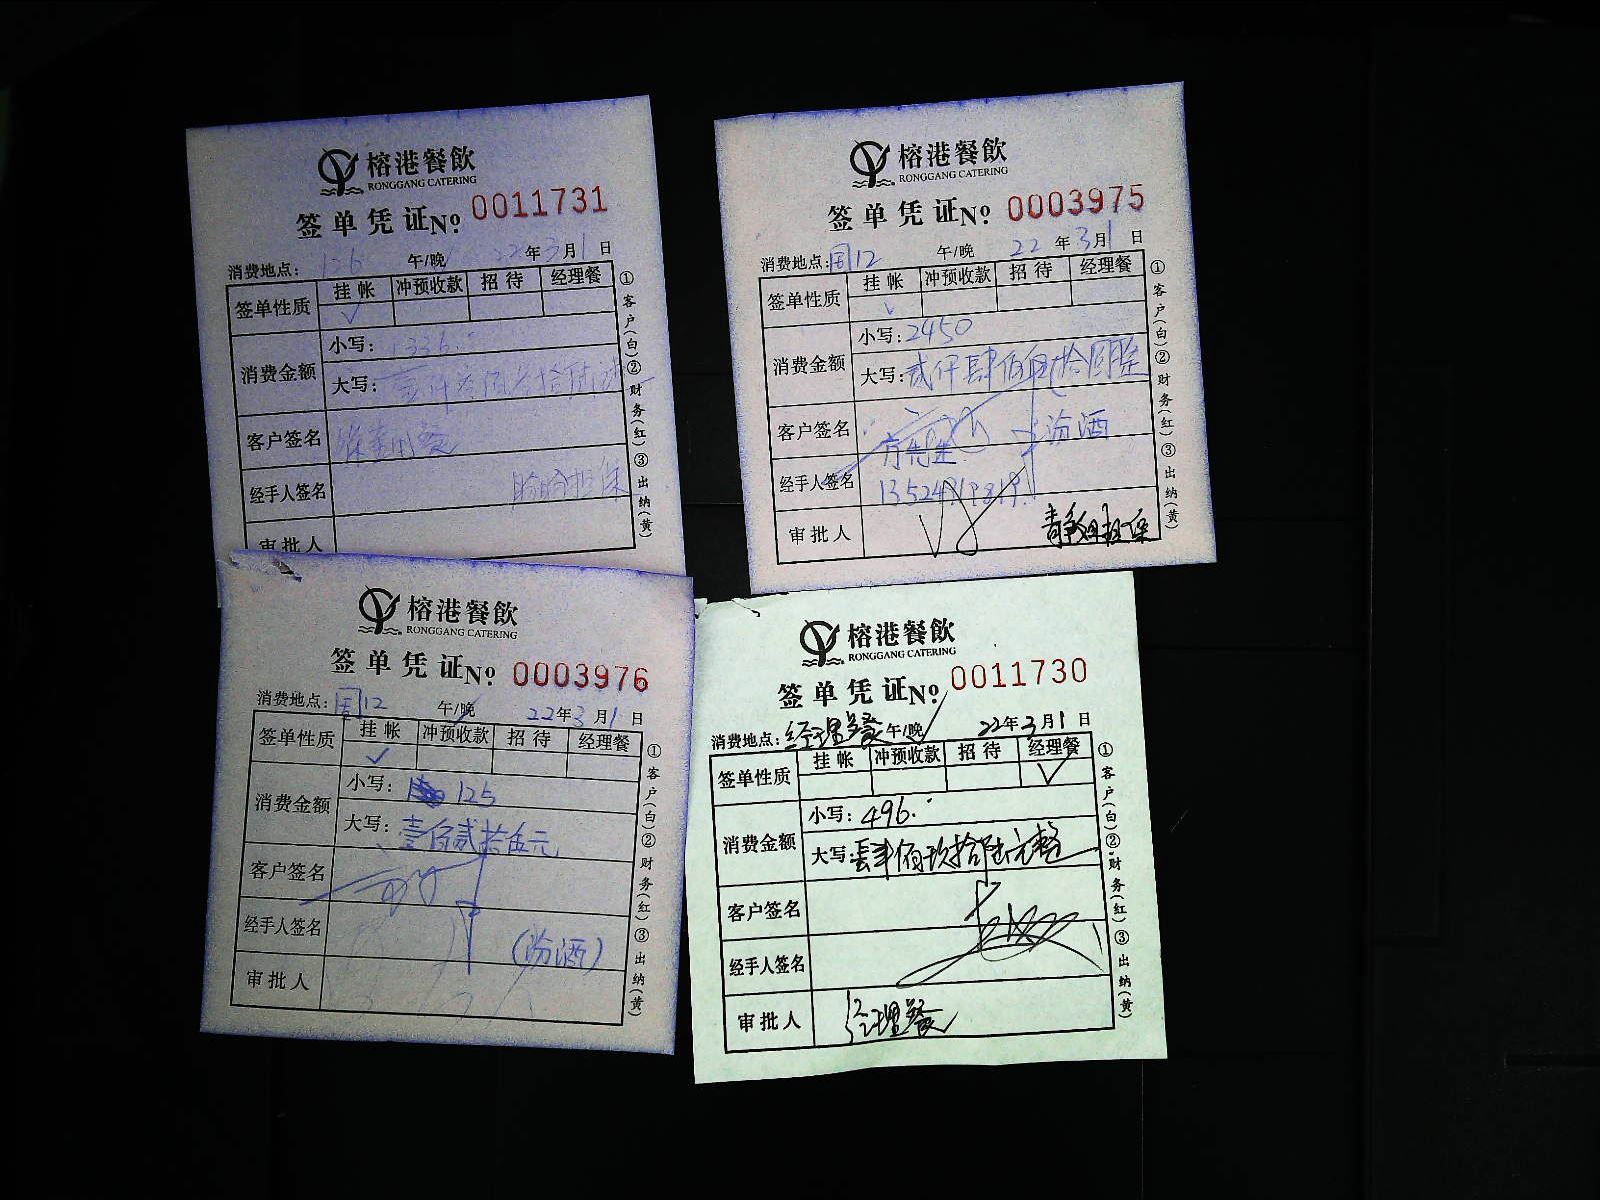 榕港餐飲
RONGGANG CATERING
签单凭证 No 0011731
消费地点: 126 午/晚 22年3月1日
签单性质 挂帐 冲预收款 招待 经理餐
✓
消费金额 小写: 1336.
大写: 壹仟叁佰叁拾陆
客户签名
经手人签名 担保
审批人
①客户(白)②财务(红)③出纳(黄)
榕港餐飲
RONGGANG CATERING
签单凭证 No 0003975
消费地点: 周12 午/晚 22年3月1日
签单性质 挂帐 冲预收款 招待 经理餐
✓
消费金额 小写: 2450
大写: 贰仟肆佰伍拾圆整
客户签名 方先生 汾酒
经手人签名
审批人 静姐担保
①客户(白)②财务(红)③出纳(黄)
榕港餐飲
RONGGANG CATERING
签单凭证 No 0003976
消费地点: 周12 午/晚 22年3月1日
签单性质 挂帐 冲预收款 招待 经理餐
✓
消费金额 小写: 125
大写: 壹佰贰拾伍元
客户签名
经手人签名 (汾酒)
审批人
①客户(白)②财务(红)③出纳(黄)
榕港餐飲
RONGGANG CATERING
签单凭证 No 0011730
消费地点: 经理餐 午/晚 22年3月1日
签单性质 挂帐 冲预收款 招待 经理餐
✓
消费金额 小写: 496.
大写: 肆佰玖拾陆元整
客户签名
经手人签名
审批人 经理餐
①客户(白)②财务(红)③出纳(黄)